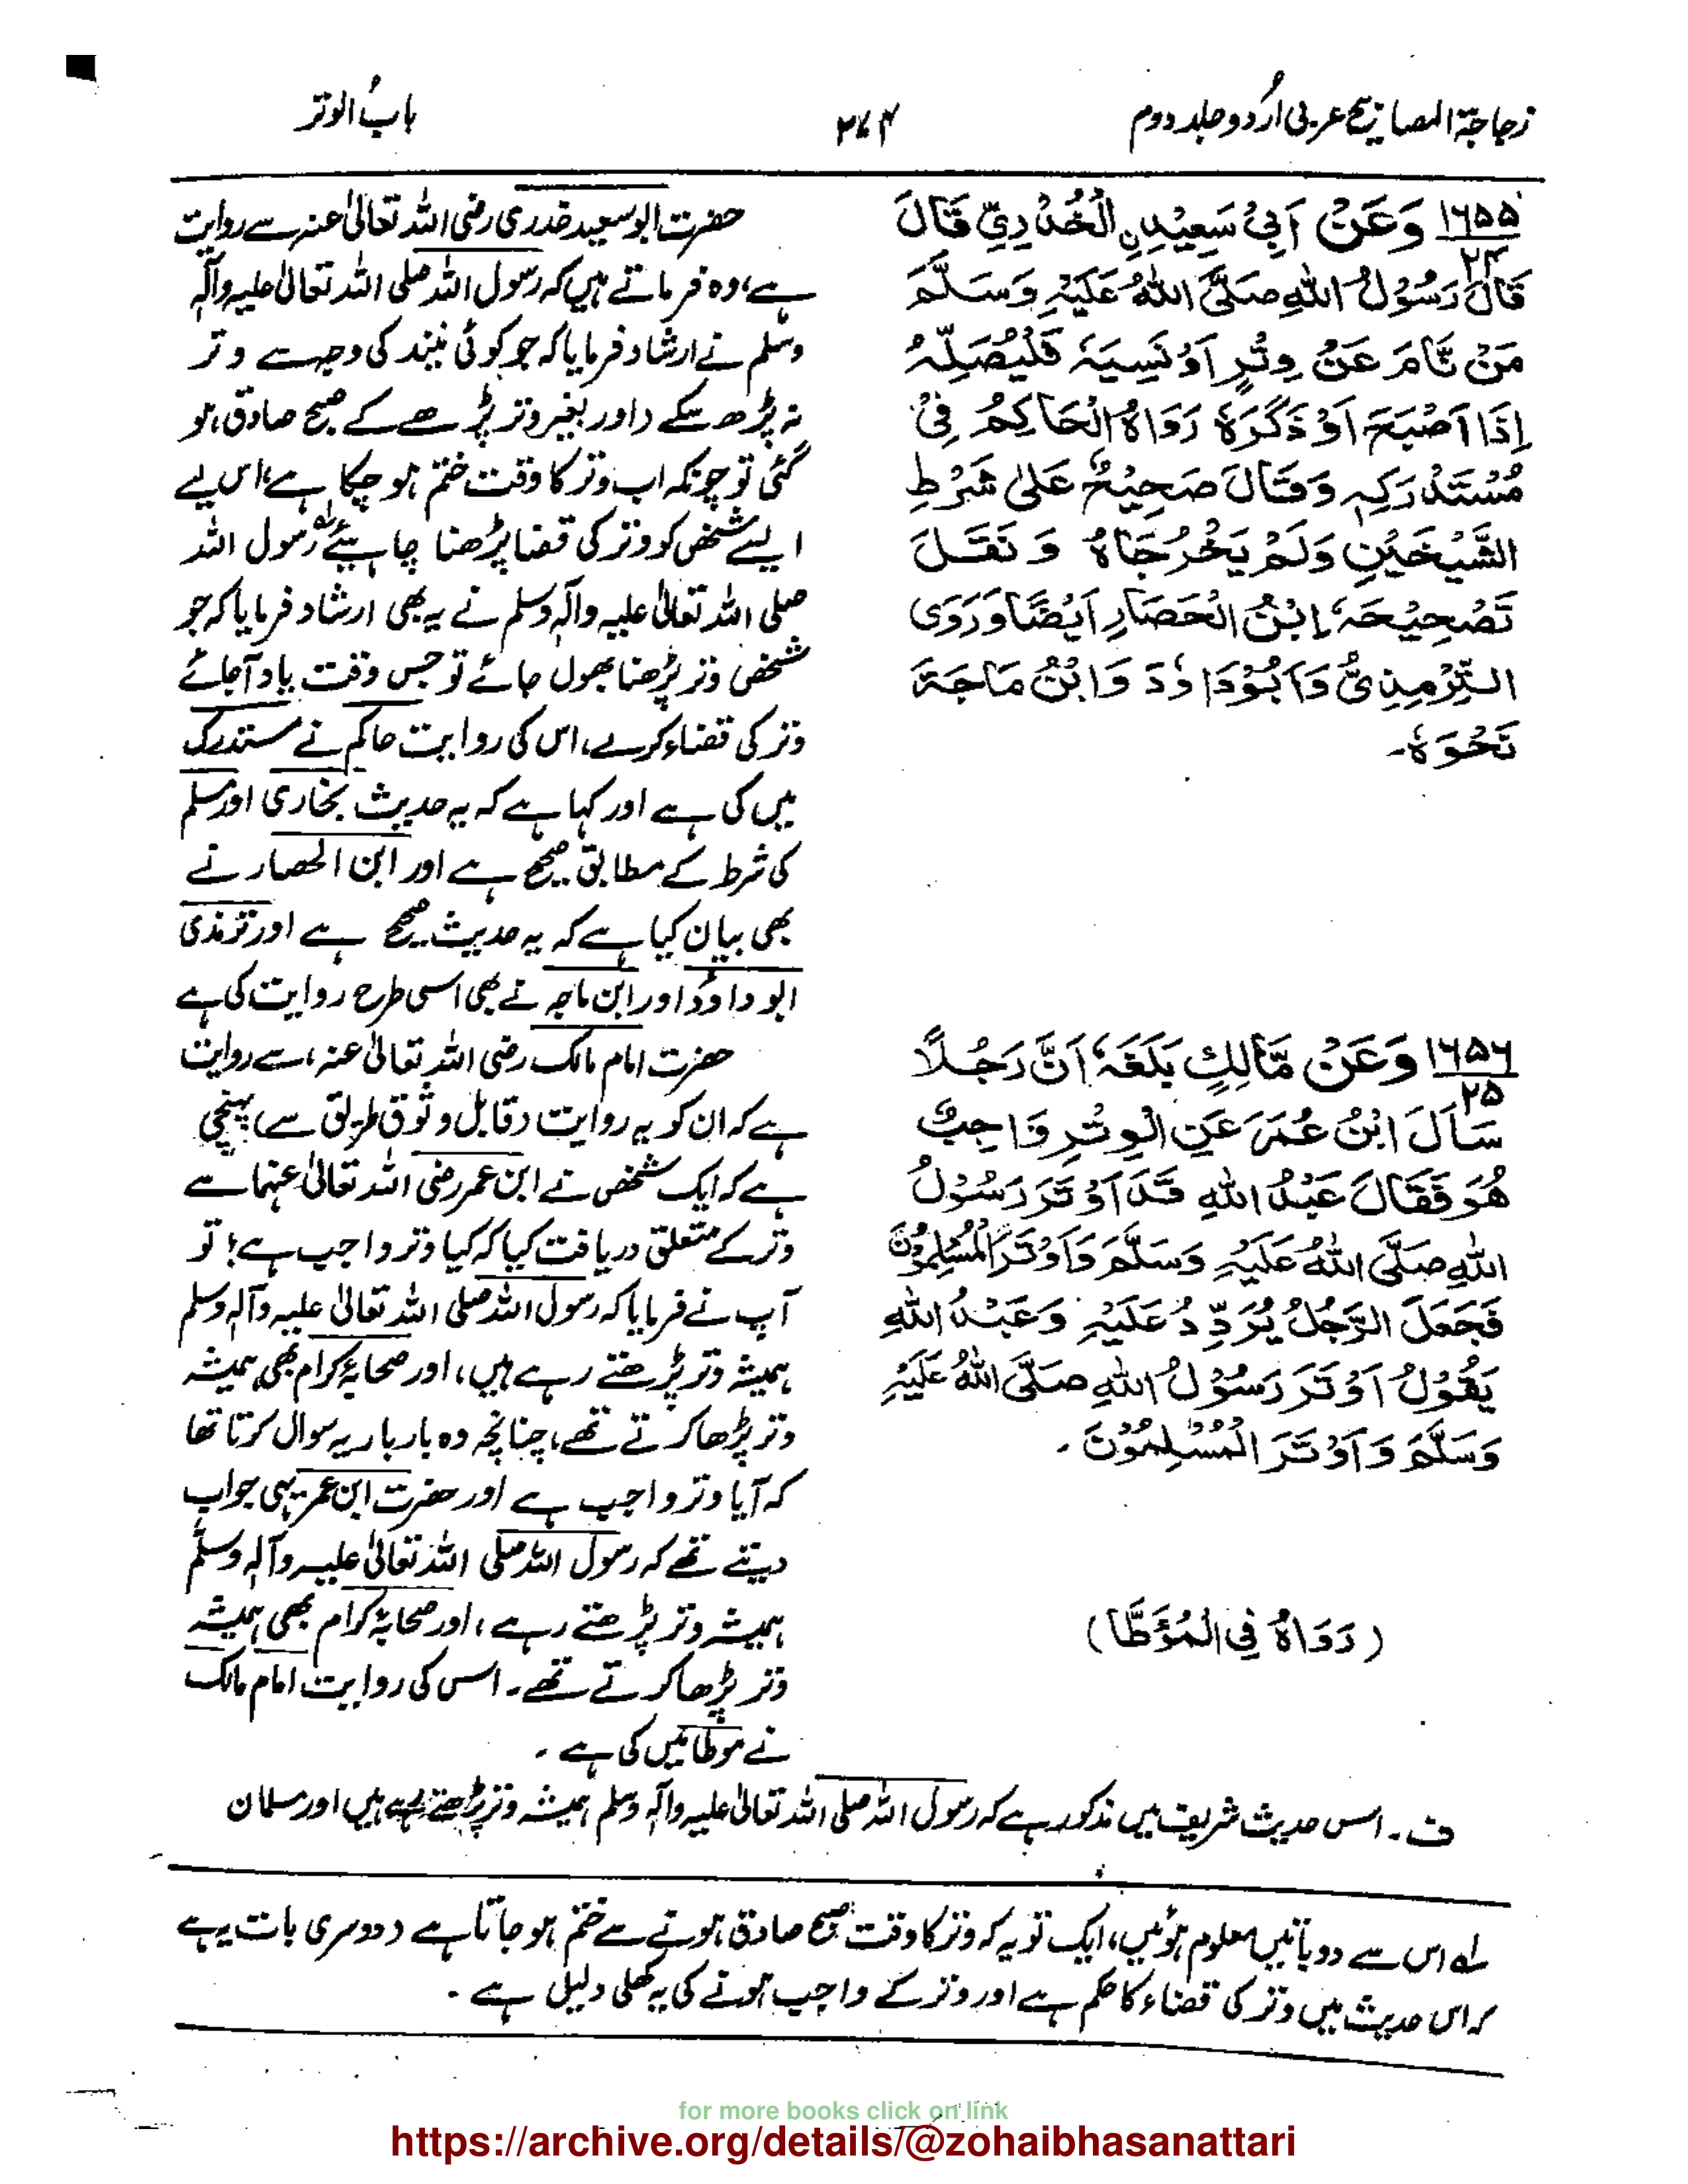 زجاجۃ المصابیح عربی اردو جلد دوم
۲۷۴
بابُ الوتر
۱۶۵۵ وَعَنْ اَبِیْ سَعِیْدِنِ الْخُدْرِیِّ قَالَ
۲۴
قَالَ رَسُوْلُ اللّٰهِ صَلَّی اللّٰهُ عَلَیْہِ وَسَلَّمَ
مَنْ نَّامَ عَنْ وِتْرٍ اَوْ نَسِیَہٗ فَلْیُصَلِّہٖ
اِذَا اَصْبَحَ اَوْ ذَکَرَہٗ رَوَاہُ الْحَاکِمُ فِیْ
مُسْتَدْرَکِہٖ وَقَالَ صَحِیْحٌ عَلٰی شَرْطِ
الشَّیْخَیْنِ وَلَمْ یَخْرُجَاہُ وَنَقَلَ
تَصْحِیْحَہٗ اِبْنُ الْحَصَارِ اَیْضًا وَرَوَی
التِّرْمِذِیُّ وَاَبُوْدَاوٗدَ وَابْنُ مَاجَۃَ
نَحْوَہٗ۔
حضرت ابو سعید خدری رضی اللہ تعالیٰ عنہ سے روایت
ہے، وہ فرماتے ہیں کہ رسول اللہ صلی اللہ تعالیٰ علیہ وآلہٖ
وسلم نے ارشاد فرمایا کہ جو کوئی نیند کی وجہ سے وتر
نہ پڑھ سکے (اور بغیر وتر پڑھے کے صبح صادق ہو
گئی تو چونکہ اب وتر کا وقت ختم ہو چکا ہے، اس لیے
ایسے شخص کو وتر کی قضا پڑھنا چاہیئے لہ رسول اللہ
صلی اللہ تعالیٰ علیہ وآلہٖ وسلم نے یہ بھی ارشاد فرمایا کہ جو
شخص وتر پڑھنا بھول جائے تو جس وقت یاد آجائے
وتر کی قضاء کرے، اس کی روایت حاکم نے مستدرک
میں کی ہے اور کہا ہے کہ یہ حدیث بخاری اور مسلم
کی شرط کے مطابق صحیح ہے اور ابن الحصار نے
بھی بیان کیا ہے کہ یہ حدیث صحیح ہے اور ترمذی
ابو داوٗد اور ابن ماجہ نے بھی اسی طرح روایت کی ہے
۱۶۵۶ وَعَنْ مَّالِكٍ بَلَغَہٗ اَنَّ رَجُلًا
۲۵
سَاَلَ ابْنَ عُمَرَ عَنِ الْوِتْرِ وَاجِبٌ
هُوَ فَقَالَ عَبْدُ اللّٰهِ قَدْ اَوْتَرَ رَسُوْلُ
اللّٰهِ صَلَّی اللّٰهُ عَلَیْہِ وَسَلَّمَ وَاَوْتَرَ الْمُسْلِمُوْنَ
فَجَعَلَ الرَّجُلُ یُرَدِّدُ عَلَیْہِ وَعَبْدُ اللّٰهِ
یَقُوْلُ اَوْتَرَ رَسُوْلُ اللّٰهِ صَلَّی اللّٰهُ عَلَیْہِ
وَسَلَّمَ وَاَوْتَرَ الْمُسْلِمُوْنَ۔
(رَوَاہُ فِی الْمُؤَطَّا)
حضرت امام مالک رضی اللہ تعالیٰ عنہ، سے روایت
ہے کہ ان کو یہ روایت (قابل وثوق طریق سے) پہنچی
ہے کہ ایک شخص نے ابن عمر رضی اللہ تعالیٰ عنہما سے
وتر کے متعلق دریافت کیا کہ کیا وتر واجب ہے؟ تو
آپ نے فرمایا کہ رسول اللہ صلی اللہ تعالیٰ علیہ وآلہٖ وسلم
ہمیشہ وتر پڑھتے رہے ہیں، اور صحابۂ کرام بھی ہمیشہ
وتر پڑھا کرتے تھے، چنانچہ وہ بار بار یہ سوال کرتا تھا
کہ آیا وتر واجب ہے اور حضرت ابن عمر یہی جواب
دیتے تھے کہ رسول اللہ صلی اللہ تعالیٰ علیہ وآلہٖ وسلم
ہمیشہ وتر پڑھتے رہے، اور صحابۂ کرام بھی ہمیشہ
وتر پڑھا کرتے تھے۔ اس کی روایت امام مالک
نے موطا میں کی ہے۔
ف۔ اس حدیث شریف میں مذکور ہے کہ رسول اللہ صلی اللہ تعالیٰ علیہ وآلہٖ وسلم ہمیشہ وتر پڑھتے رہے ہیں اور مسلمان
لہ اس سے دو باتیں معلوم ہوئیں، ایک تو یہ کہ وتر کا وقت صبح صادق ہونے سے ختم ہو جاتا ہے (دوسری بات یہ ہے
کہ اس حدیث میں وتر کی قضاء کا حکم ہے اور وتر کے واجب ہونے کی یہ کھلی دلیل ہے۔
for more books click on link
https://archive.org/details/@zohaibhasanattari